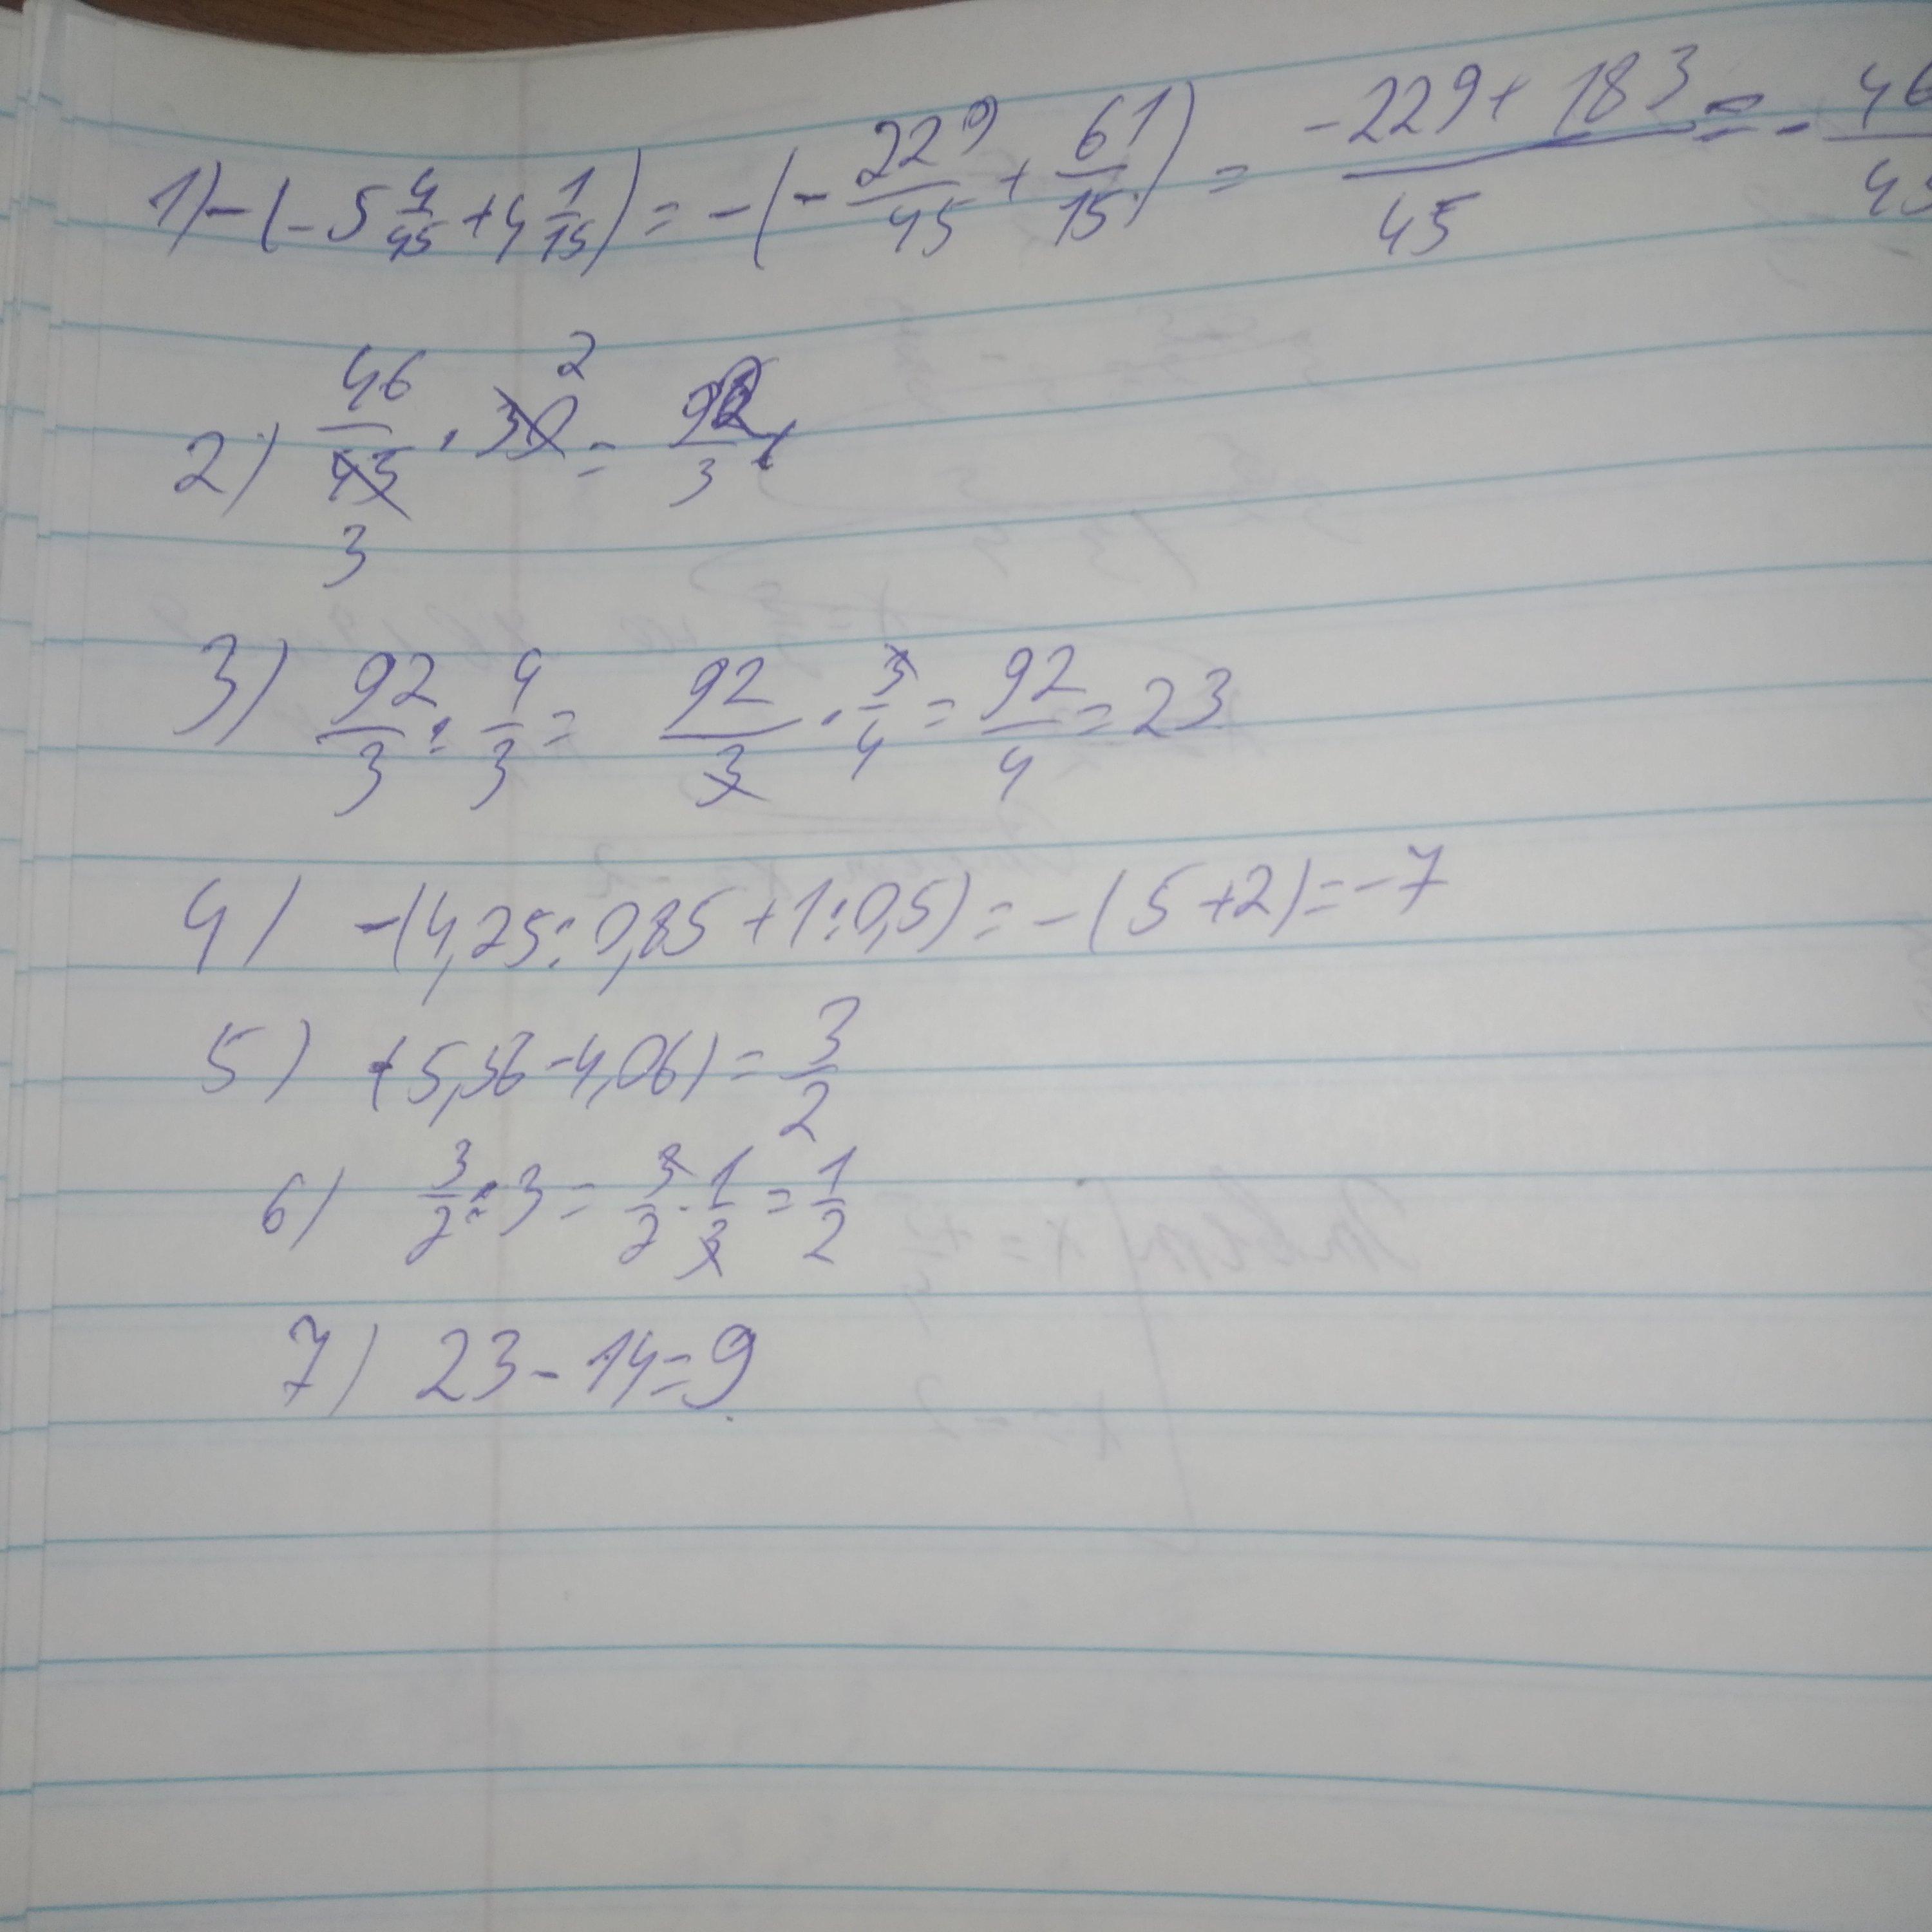 1) -(-5 4/45 + 4 1/15) = -(-229/45 + 61/15) = (-229 + 183)/45 = - 46/45
2) 46/45 3 · 30 2 = 92/3
3) 92/3 : 4/3 = 92/3 · 3/4 = 92/4 = 23
4) -(4,25 : 0,85 + 1 : 0,5) = -(5 + 2) = -7
5) (5,56 - 4,06) = 3/2
6) 3/2 : 3 = 3/2 · 1/3 = 1/2
7) 23 - 14 = 9